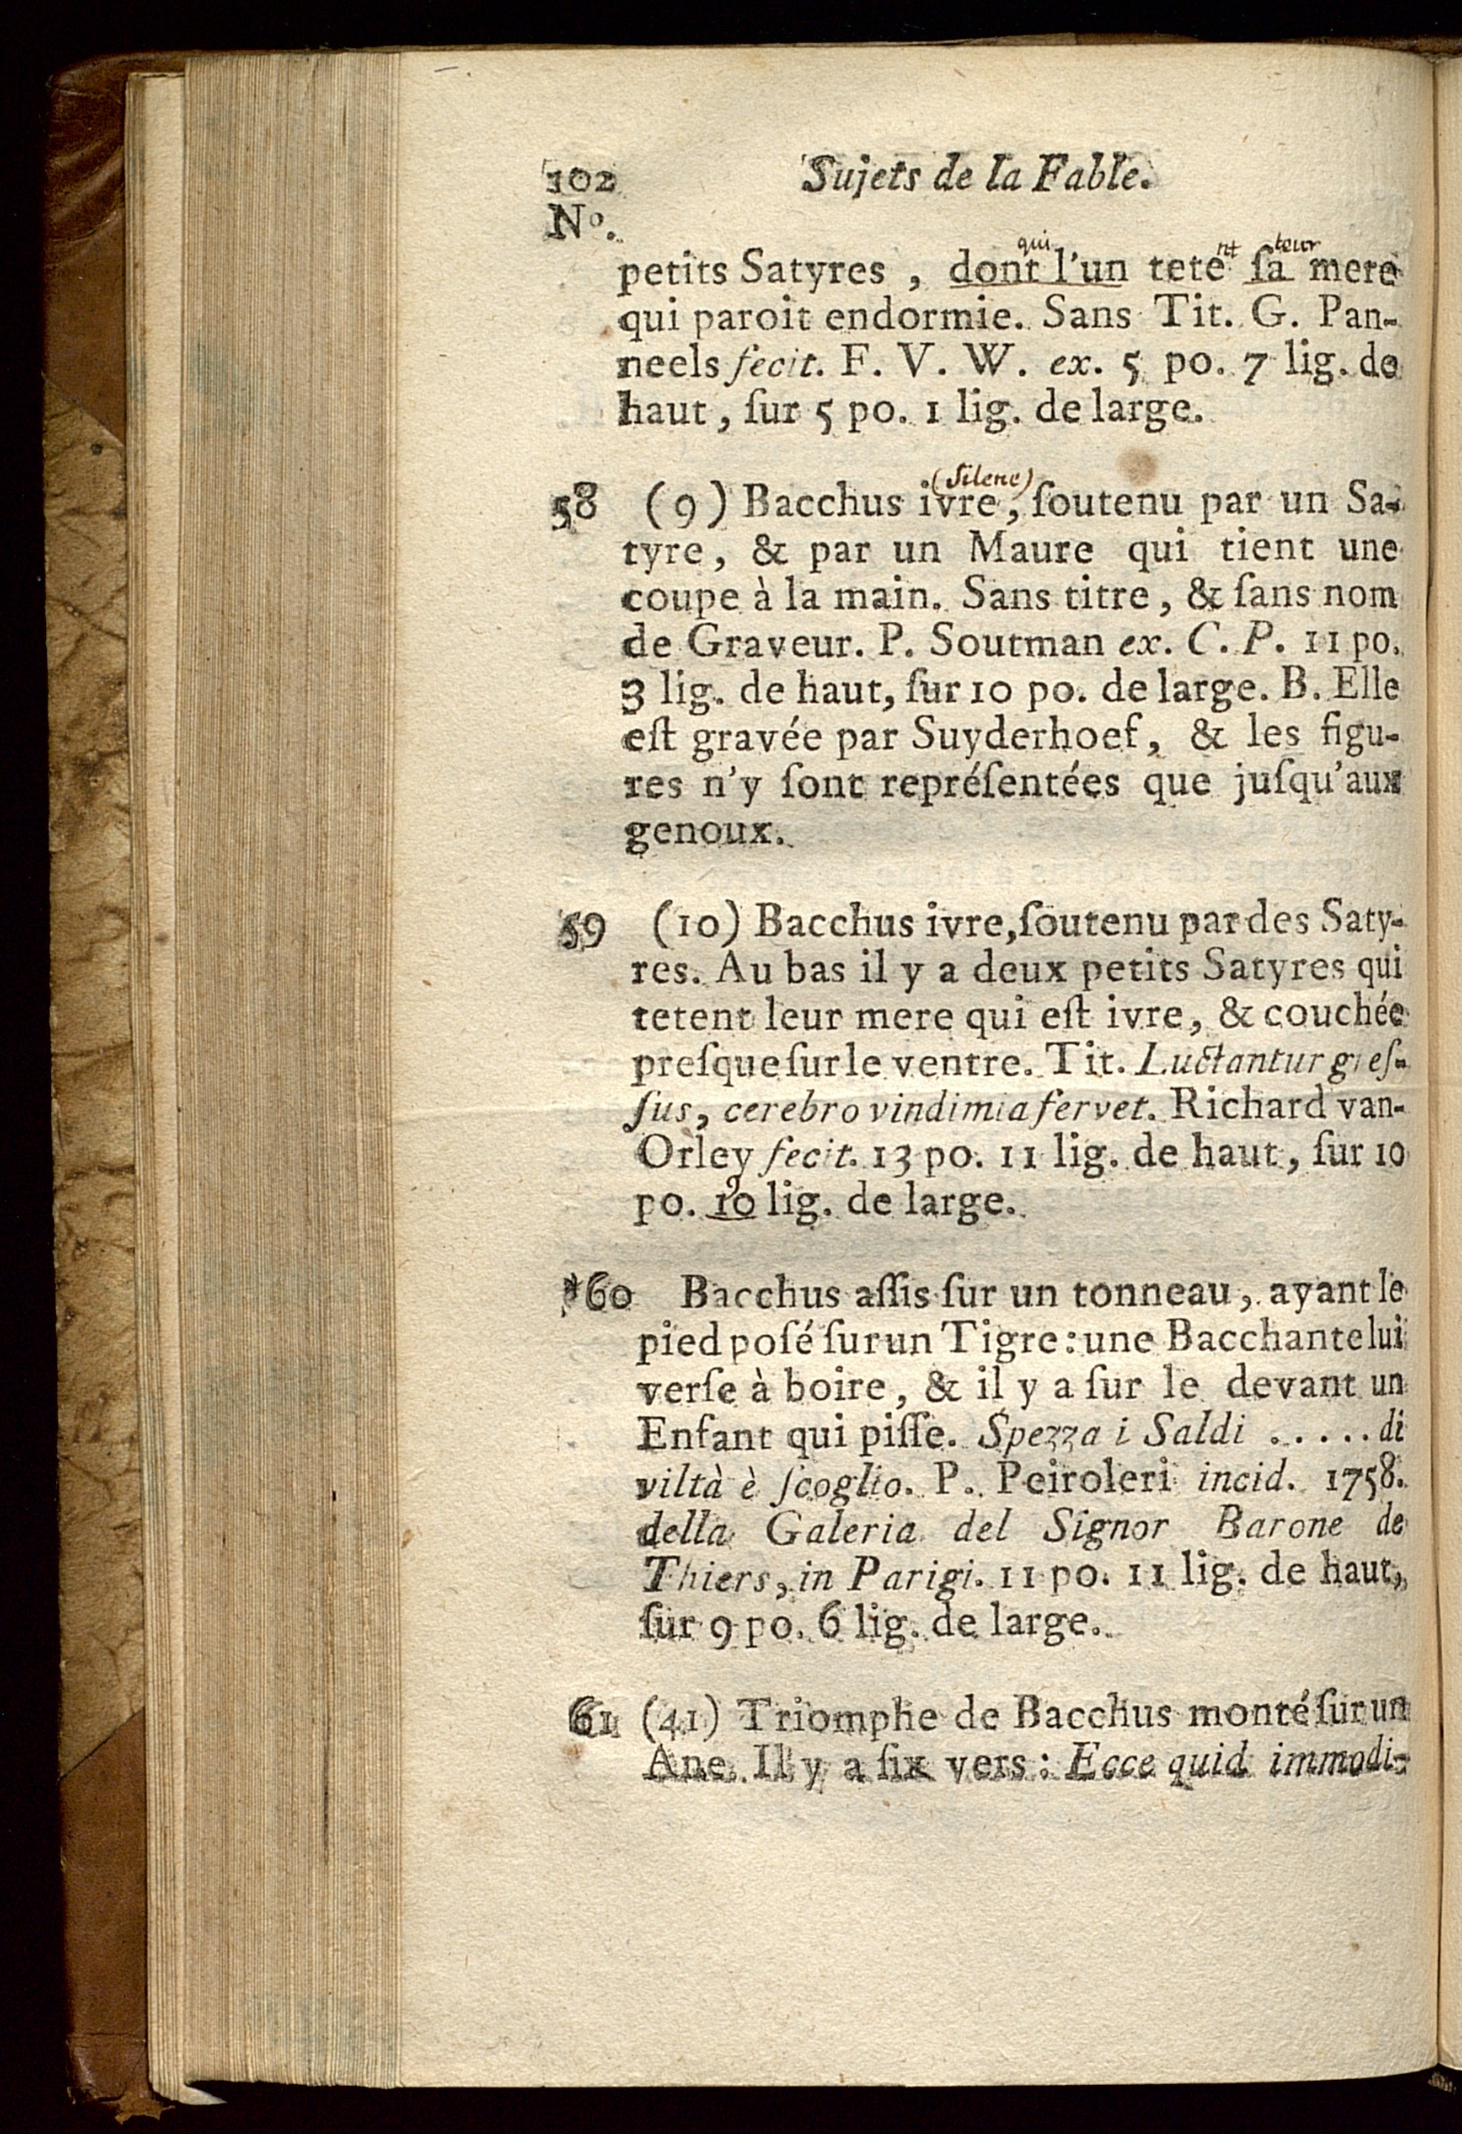 102 Sujets de la Fable.
Nº.
qui nt leur
petits Satyres , dont l'un tete ſa mere
qui paroit endormie. Sans Tit. G. Pan-
neels fecit. F. V. W. ex. 5 po. 7 lig. de
haut, ſur 5 po. 1 lig. de large.
(Silene)
58 (9) Bacchus ivre, ſoutenu par un Sa-
tyre, & par un Maure qui tient une
coupe à la main. Sans titre, & ſans nom
de Graveur. P. Soutman ex. C. P. 11 po.
3 lig. de haut, ſur 10 po. de large. B. Elle
eſt gravée par Suyderhoef, & les figu-
res n'y ſont repréſentées que juſqu'aux
genoux.
59 (10) Bacchus ivre, ſoutenu par des Saty-
res. Au bas il y a deux petits Satyres qui
tetent leur mere qui eſt ivre, & couchée
preſque ſur le ventre. Tit. Luctantur greſ-
ſus, cerebro vindimia fervet. Richard van-
Orley fecit. 13 po. 11 lig. de haut, ſur 10
9
po. 10 lig. de large.
*60 Bacchus aſſis ſur un tonneau, ayant le
pied poſé ſur un Tigre : une Bacchante lui
verſe à boire, & il y a ſur le devant un
Enfant qui piſſe. Spezza i Saldi ..... di
viltà è ſcoglio. P. Peiroleri incid. 1758.
della Galeria del Signor Barone de
Thiers, in Parigi. 11 po. 11 lig. de haut,
ſur 9 po. 6 lig. de large.
61 (41) Triomphe de Bacchus monté ſur un
Ane. Il y a ſix vers : Ecce quid immodi-